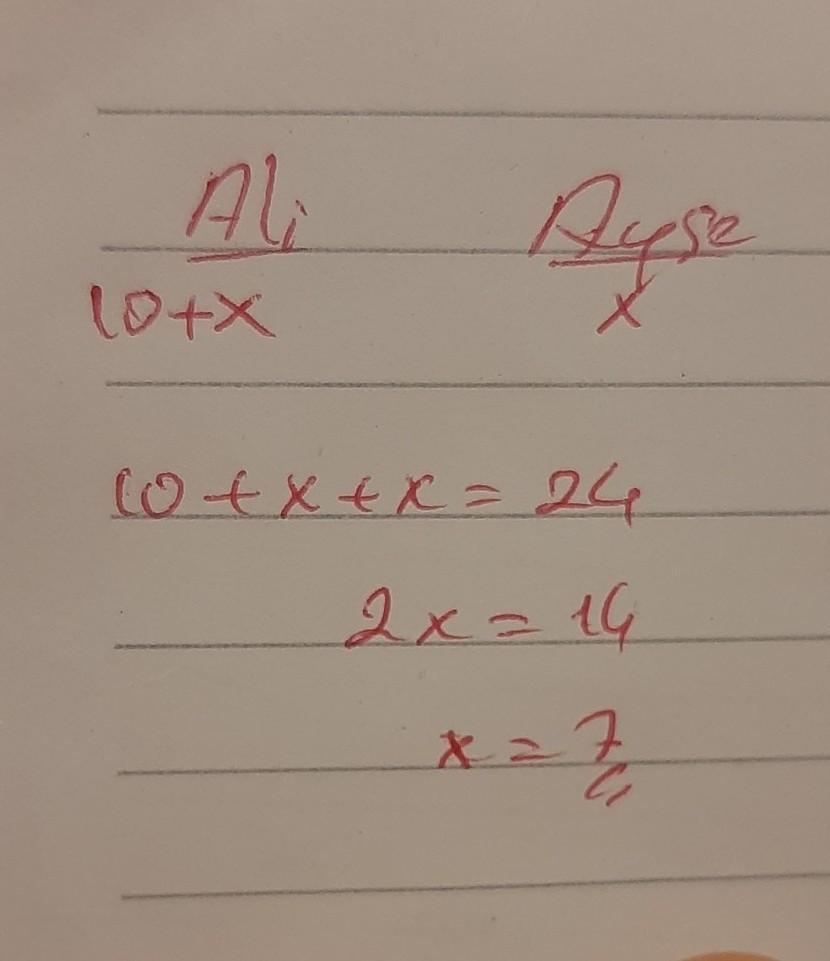 Ali Ayşe
10+x x
10+x+x=24
2x=14
x=7